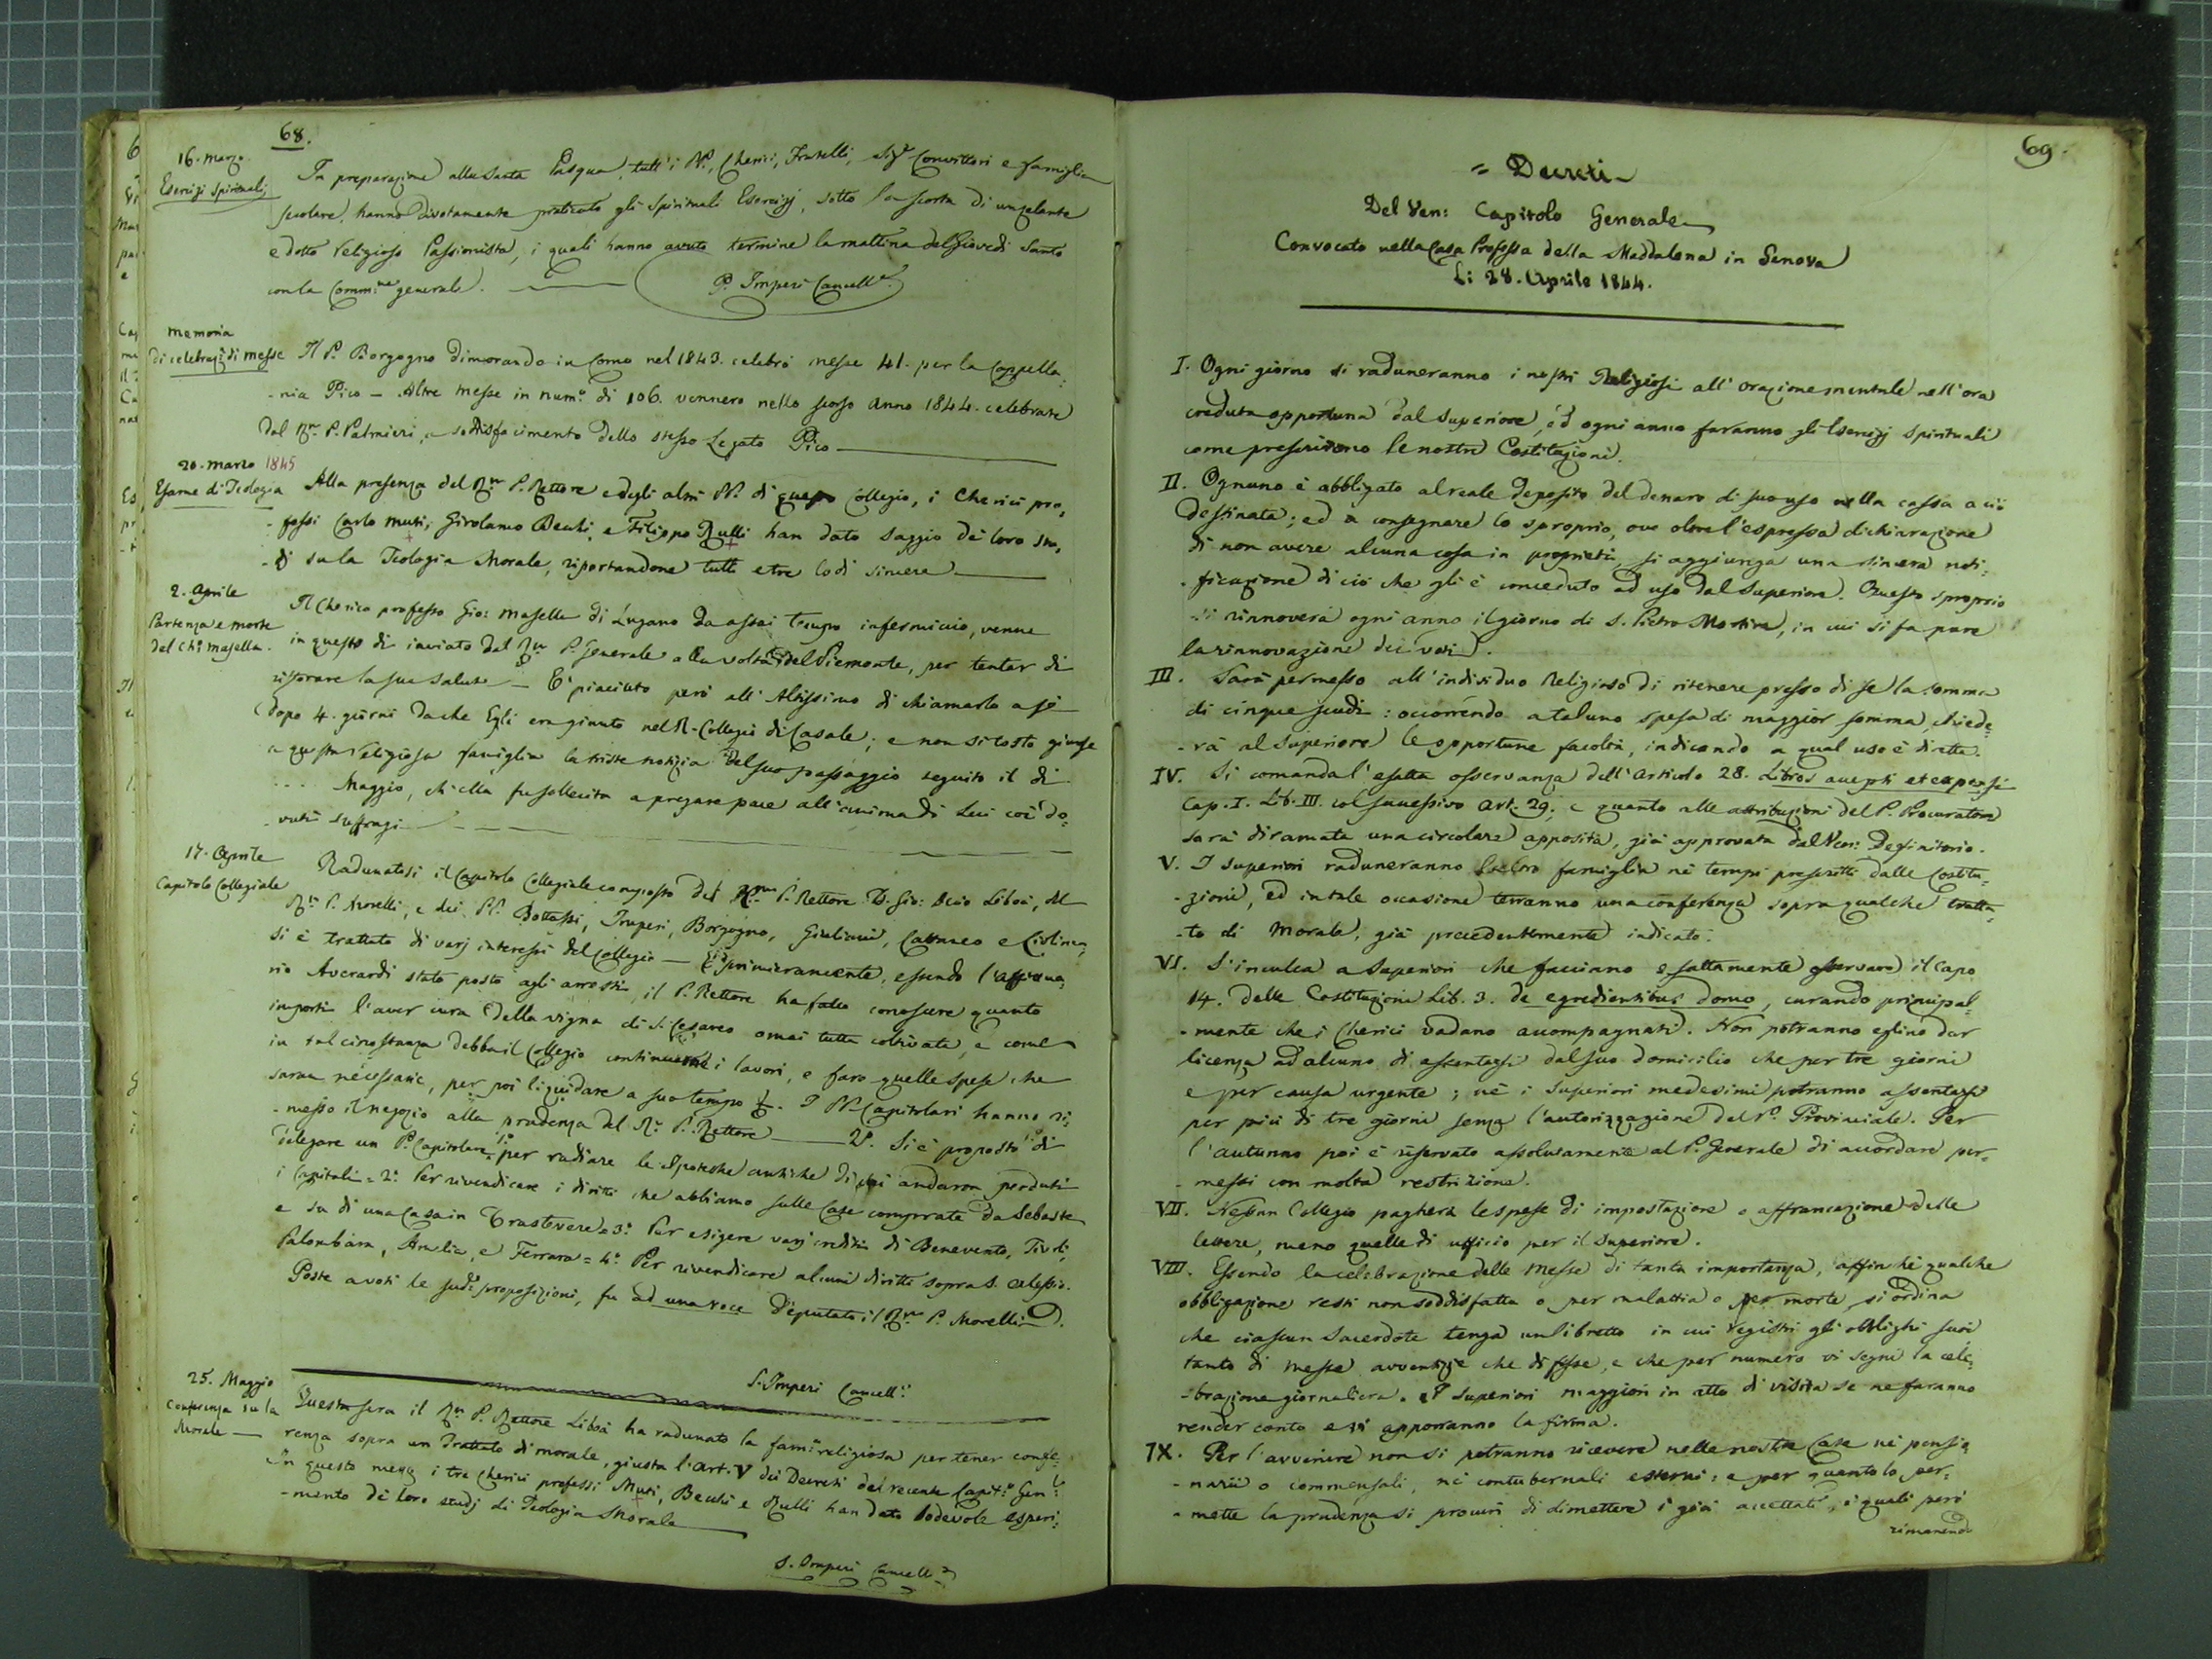 68.
16. Marzo.
Esercizj Spirituali
In preparazione alla Santa Pasqua, tutt'i PP., Cherici, Fratelli, Sigri Convittori e famiglia
secolare, hanno divotamente praticato gli Spirituali Esercizj, sotto la scorta di un zelante
e dotto Religioso Passionista, i quali hanno avuto termine la mattina del Giovedì Santo
con la Comm:ne generale.
P. Imperi Cancell.e
Memoria
di celebraz.e di messe
Il P. Borgogno dimorando in Como nel 1843. celebrò messe 41. per la Cappella:
-nia Pico - Altre messe in num.o di 106. vennero nello scorso anno 1844. celebrate
dal Rm. P. Palmieri, a soddisfacimento dello stesso Legato Pico
20. Marzo 1845
Esame di Teologia
Alla presenza del Rm P. Rettore e degli altri PP. di questo Collegio, i Cherici pro,
-fessi Carlo Muti, Girolamo Beuchi, e Filippo Rulli han dato saggio de' loro stu,
-dj su la Teologia Morale, riportandone tutti e tre lodi sincere
2. Aprile
Partenza e morte
del Ch.o Masella.
Il Cherico professo Gio: Masella di Lugano da assai tempo infermiccio, venne
in questo dì inviato dal Rm P. Generale alla volta del Piemonte, per tentar di
ristorare la sua salute - È piaciuto però all'Altissimo di chiamarlo a sè
dopo 4. giorni dache Egli era giunto nel R. Collegio di Casale; e non sì tosto giunse
a questa religiosa famiglia la triste notizia del suo passaggio seguito il dì
... Maggio, ch'ella fu sollecita a pregare pace all'anima di Lui coi do:
-vuti suffragi
17. Aprile
Capitolo Collegiale
Radunatosi il Capitolo Collegiale composto del Rmo P. Rettore D. Gio: Decio Libois, del
Rm P. Morelli, e dei PP. Bottassi, Imperi, Borgogno, Giuliani, Cattaneo e
si è trattato di varj interessi del Collegio - E primieramente, essendo l'affittua,
rio Averardi stato posto agli arresti, il P. Rettore ha fatto conoscere quanto
importi l'aver cura della vigna di S. Cesareo omai tutta coltivata, e come
in tal circostanza debba il Collegio continuarne i lavori, e fare quelle spese che
saran necessarie, per poi liquidare a suo tempo. I PP. Capitolari hanno ri,
-messo il negozio alla prudenza del Rm P. Rettore 2o. Si è proposto di
delegare un P. Capitolare 1o per radiare le Ipoteche antiche di cui andaron perduti
i Capitali = 2o Per rivendicare i diritti che abbiamo sulle Case comprate da Sebaste
e su di una Casa in Trastevere = 3o Per esigere varj crediti di Benevento, Tivoli,
Palombara, Amelia, e Ferrara = 4o Per rivendicare alcuni diritti sopra S. Alessio.
Poste a voti le sudd.e proposizioni, fu ad una voce deputato il Rm P. Morelli.
S. Imperi Cancell.e
25. Maggio
Conferenza su la
Morale
Questa sera il Rm P. Rettore Libois ha radunato la fami:a religiosa per tener confe:
renza sopra un Trattato di morale, giusta l'Art. V dei Decreti del recente Capit:o Gen:le
In questo mese i tre Cherici professi Muti, Beuchi e Rulli han dato lodevole esperi:
-mento de' loro studj di Teologia Morale
S. Imperi Cancell.e
69.
= Decreti
Del Ven: Capitolo Generale
Convocato nella Casa Professa della Maddalena in Genova
Li 28. Aprile 1844.
I. Ogni giorno si raduneranno i nostri Religiosi all'orazione mentale nell'ora
creduta opportuna dal Superiore, ed ogni anno faranno gli Esercizj Spirituali
come prescrivono le nostre Costituzioni.
II. Ognuno è obbligato al reale deposito del denaro di suo uso nella cassa a ciò
destinata; ed a consegnare lo sproprio, ove oltre l'espressa dichiarazione
di non avere alcuna cosa in proprietà, si aggiunga una sincera noti:
-ficazione di ciò che gli è conceduto ad uso dal Superiore. Questo sproprio
si rinnoverà ogni anno il giorno di S. Pietro Martire, in cui si fa pure
la rinnovazione dei voti.
III. Sarà permesso all'individuo Religioso di ritenere presso di se la somma
di cinque scudi: occorrendo a taluno spesa di maggior somma, chiede:
-rà al Superiore le opportune facoltà, indicando a qual uso è diretta.
IV. Si comanda l'esatta osservanza dell'Articolo 28. Libros accepti et expensi
Cap. I. Lib. III. col successivo Art. 29; e quanto alle attribuzioni del P. Procuratore
sarà diramata una circolare apposita, già approvata dal Ven: Definitorio.
V. I Superiori raduneranno la loro famiglia nè tempi prescritti dalle Costitu:
-zioni, ed in tale occasione terranno una conferenza sopra qualche tratta,
-to di Morale, già precedentemente indicato.
VI. S'inculca a Superiori che facciano esattamente osservare il Capo
14. delle Costituzioni Lib. 3. de egredientibus domo, curando principal:
-mente che i Cherici vadano accompagnati. Non potranno eglino dar
licenza ad alcuno di assentarsi dal suo domicilio che per tre giorni
e per causa urgente; nè i Superiori medesimi potranno assentarsi
per più di tre giorni senza l'autorizzazione del P. Provinciale. Per
l'autunno poi è riservato assolutamente al P. Generale di accordare per:
-messi con molta restrizione.
VII. Nessun Collegio pagherà le spese di impostazione o affrancazione delle
lettere, meno quelle di ufficio per il Superiore.
VIII. Essendo la celebrazione delle Messe di tanta importanza, affinchè qualche
obbligazione resti non soddisfatta o per malattia o per morte, si ordina
che ciascun Sacerdote tenga un libretto in cui registri gli obblighi suoi
tanto di messe avventizie che di fisse, e che per numero vi segni la cele:
-brazione giornaliera. I Superiori maggiori in atto di visita se ne faranno
render conto e vi apporranno la firma.
IX. Per l'avvenire non si potranno ricevere nelle nostre Case nè pensio,
-narii o commensali, nè contubernali esterni: e per quanto lo per:
-mette la prudenza si procuri di dimettere i già accettati, i quali però
rimanendo